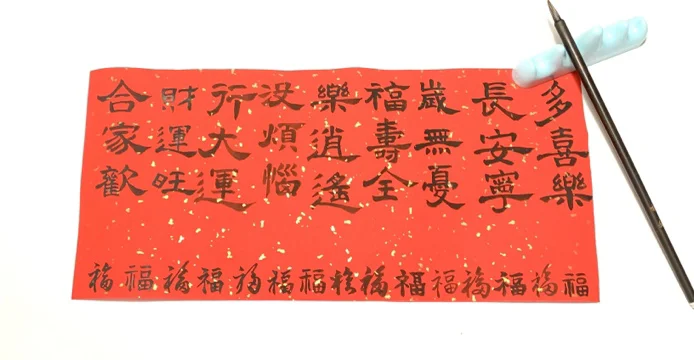 多喜樂
長安寧
歲無憂
福壽全
樂逍遙
没煩惱
行大運
財運旺
合家歡
福福福福福福福福福福福福福福福